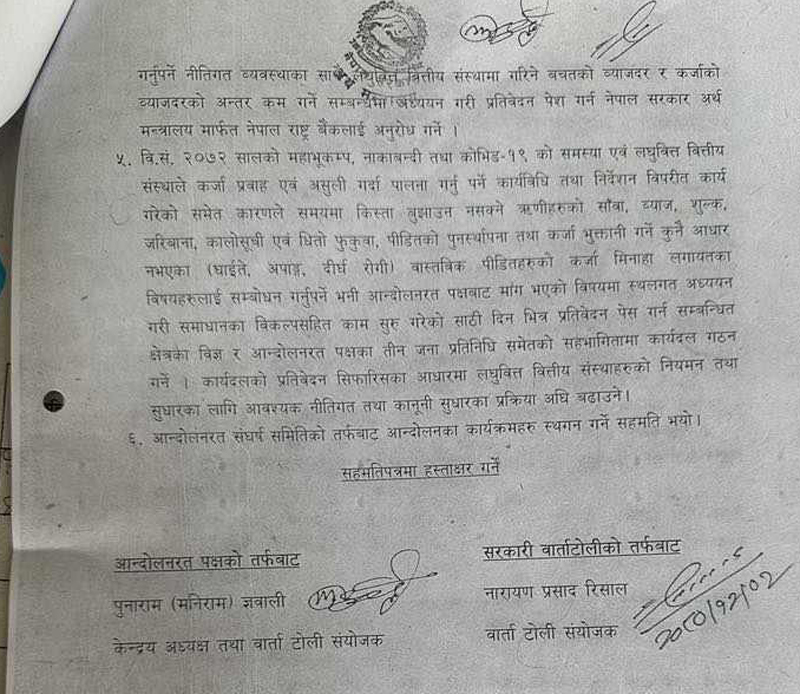 गर्नुपर्ने नीतिगत व्यवस्थाका साथै लघुवित्त वित्तीय संस्थामा गरिने बचतको ब्याजदर र कर्जाको
ब्याजदरको अन्तर कम गर्ने सम्बन्धमा अध्ययन गरी प्रतिवेदन पेश गर्न नेपाल सरकार अर्थ
मन्त्रालय मार्फत नेपाल राष्ट्र बैंकलाई अनुरोध गर्ने ।
५. वि.सं. २०७२ सालको महाभूकम्प, नाकाबन्दी तथा कोभिड-१९ को समस्या एवं लघुवित्त वित्तीय
संस्थाले कर्जा प्रवाह एवं असुली गर्दा पालना गर्नु पर्ने कार्यविधि तथा निर्देशन विपरीत कार्य
गरेको समेत कारणले समयमा किस्ता बुझाउन नसक्ने ऋणीहरुको साँवा, ब्याज, शुल्क,
जरिवाना, कालोसुची एवं धितो फुकुवा, पीडितको पुनर्स्थापना तथा कर्जा भुक्तानी गर्ने कुनै आधार
नभएका (घाईते, अपाङ्ग, दीर्घ रोगी) वास्तविक पीडितहरुको कर्जा मिनाहा लगायतका
विषयहरुलाई सम्बोधन गर्नुपर्ने भनी आन्दोलनरत पक्षबाट मांग भएको विषयमा स्थलगत अध्ययन
गरी समाधानका विकल्पसहित काम सुरु गरेको साठी दिन भित्र प्रतिवेदन पेस गर्न सम्बन्धित
क्षेत्रका विज्ञ र आन्दोलनरत पक्षका तीन जना प्रतिनिधि समेतको सहभागितामा कार्यदल गठन
गर्ने । कार्यदलको प्रतिवेदन सिफारिसका आधारमा लघुवित्त वित्तीय संस्थाहरुको नियमन तथा
सुधारका लागि आवश्यक नीतिगत तथा कानूनी सुधारका प्रक्रिया अघि बढाउने।
६. आन्दोलनरत संघर्ष समितिको तर्फबाट आन्दोलनका कार्यक्रमहरु स्थगन गर्ने सहमति भयो।
सहमतिपत्रमा हस्ताक्षर गर्ने
आन्दोलनरत पक्षको तर्फबाट
पुनाराम (मनिराम) ज्ञवाली
केन्द्रय अध्यक्ष तथा वार्ता टोली संयोजक
सरकारी वार्ताटोलीको तर्फबाट
नारायण प्रसाद रिसाल
वार्ता टोली संयोजक
२०८०/१२/०२